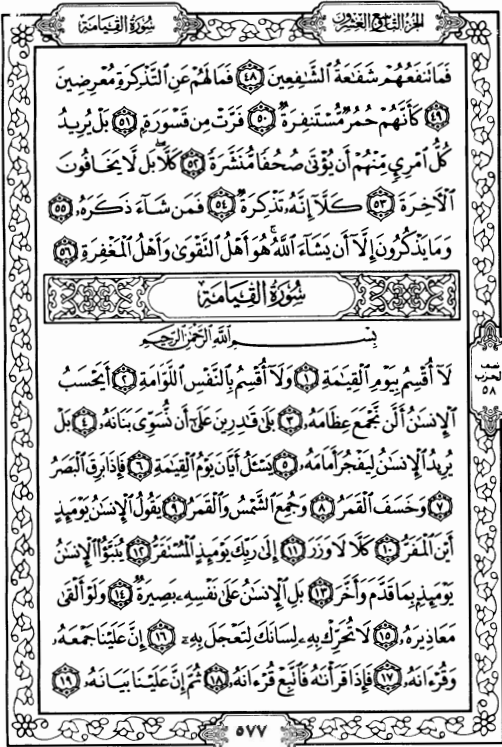 سُورَةُ القِيَامَةِ الجُزءُ التَّاسِعُ وَالعِشرُونَ
فَمَا تَنفَعُهُمْ شَفَٰعَةُ ٱلشَّٰفِعِينَ ٤٨ فَمَا لَهُمْ عَنِ ٱلتَّذْكِرَةِ مُعْرِضِينَ
٤٩ كَأَنَّهُمْ حُمُرٌ مُّسْتَنفِرَةٌ ٥٠ فَرَّتْ مِن قَسْوَرَةٍۭ ٥١ بَلْ يُرِيدُ
كُلُّ ٱمْرِئٍ مِّنْهُمْ أَن يُؤْتَىٰ صُحُفًا مُّنَشَّرَةً ٥٢ كَلَّا ۖ بَل لَّا يَخَافُونَ
ٱلْءَاخِرَةَ ٥٣ كَلَّآ إِنَّهُۥ تَذْكِرَةٌ ٥٤ فَمَن شَآءَ ذَكَرَهُۥ ٥٥
وَمَا يَذْكُرُونَ إِلَّآ أَن يَشَآءَ ٱللَّهُ ۚ هُوَ أَهْلُ ٱلتَّقْوَىٰ وَأَهْلُ ٱلْمَغْفِرَةِ ٥٦
سُورَةُ القِيَامَةِ
بِسْمِ ٱللَّهِ ٱلرَّحْمَٰنِ ٱلرَّحِيمِ
لَآ أُقْسِمُ بِيَوْمِ ٱلْقِيَٰمَةِ ١ وَلَآ أُقْسِمُ بِٱلنَّفْسِ ٱللَّوَّامَةِ ٢ أَيَحْسَبُ
ٱلْإِنسَٰنُ أَلَّن نَّجْمَعَ عِظَامَهُۥ ٣ بَلَىٰ قَٰدِرِينَ عَلَىٰٓ أَن نُّسَوِّىَ بَنَانَهُۥ ٤ بَلْ
يُرِيدُ ٱلْإِنسَٰنُ لِيَفْجُرَ أَمَامَهُۥ ٥ يَسْـَٔلُ أَيَّانَ يَوْمُ ٱلْقِيَٰمَةِ ٦ فَإِذَا بَرِقَ ٱلْبَصَرُ
٧ وَخَسَفَ ٱلْقَمَرُ ٨ وَجُمِعَ ٱلشَّمْسُ وَٱلْقَمَرُ ٩ يَقُولُ ٱلْإِنسَٰنُ يَوْمَئِذٍ
أَيْنَ ٱلْمَفَرُّ ١٠ كَلَّا لَا وَزَرَ ١١ إِلَىٰ رَبِّكَ يَوْمَئِذٍ ٱلْمُسْتَقَرُّ ١٢ يُنَبَّؤُا۟ ٱلْإِنسَٰنُ
يَوْمَئِذٍۭ بِمَا قَدَّمَ وَأَخَّرَ ١٣ بَلِ ٱلْإِنسَٰنُ عَلَىٰ نَفْسِهِۦ بَصِيرَةٌ ١٤ وَلَوْ أَلْقَىٰ
مَعَاذِيرَهُۥ ١٥ لَا تُحَرِّكْ بِهِۦ لِسَانَكَ لِتَعْجَلَ بِهِۦٓ ١٦ إِنَّ عَلَيْنَا جَمْعَهُۥ
وَقُرْءَانَهُۥ ١٧ فَإِذَا قَرَأْنَٰهُ فَٱتَّبِعْ قُرْءَانَهُۥ ١٨ ثُمَّ إِنَّ عَلَيْنَا بَيَانَهُۥ ١٩
نصف
الحزب
٥٨
٥٧٧